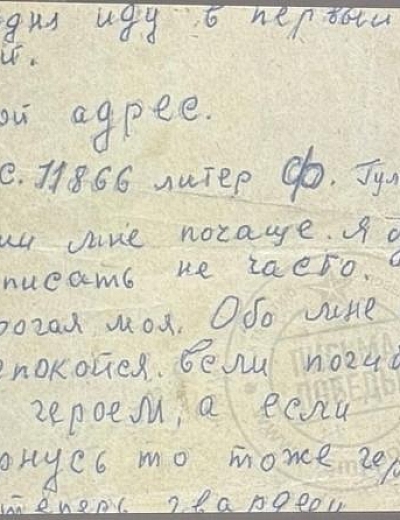 одня иду в первый
й.
ой адрес.
с. 11866 литер Ф. Гул
ши мне почаще. Я б
писать не часто.
рогая моя. Обо мне
спокойся. Если погиб
героем, а если
рнусь то тоже гер
теперь гвардеец
ПИСЬМА
ПОБЕДЫ